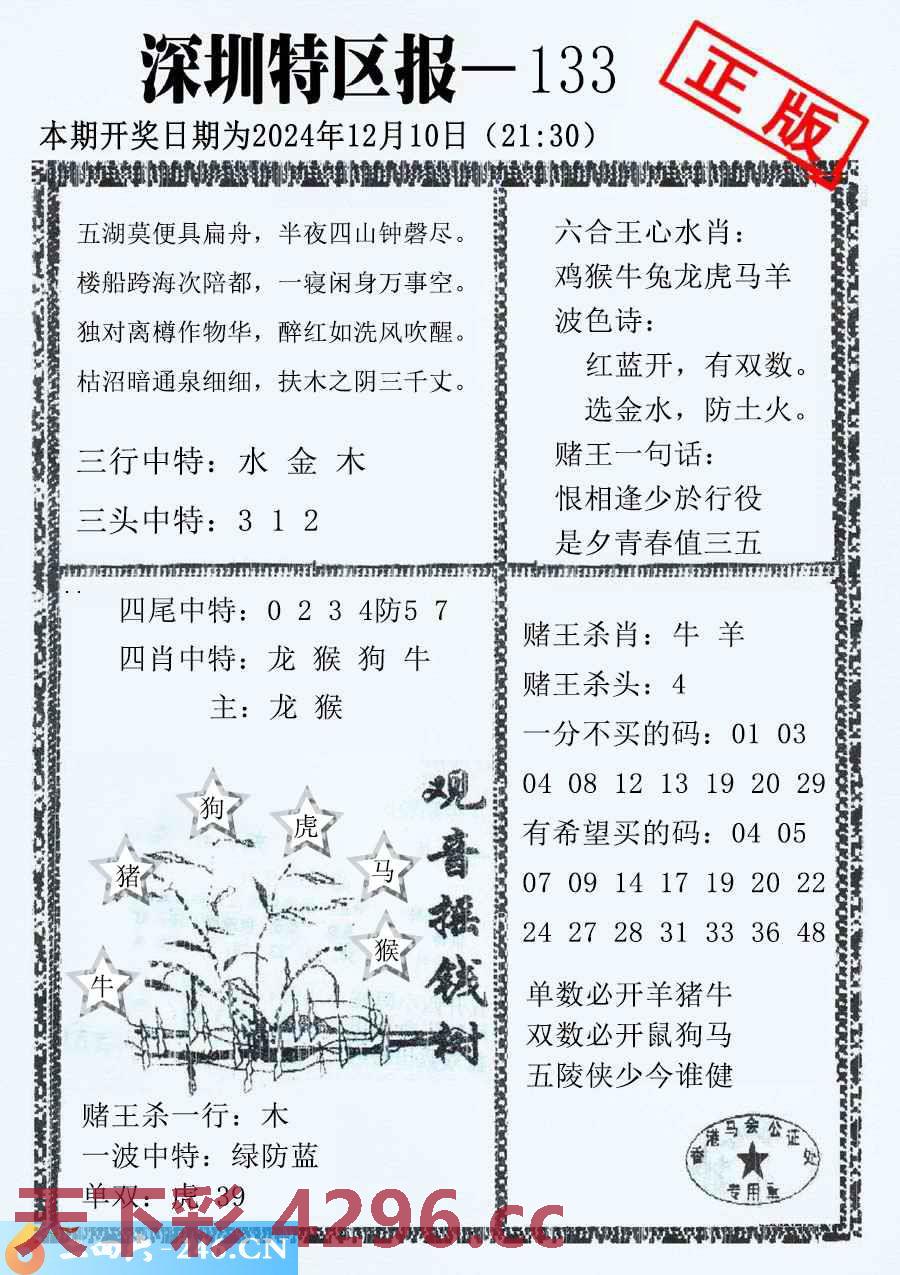 深圳特区报—133
正版
本期开奖日期为2024年12月10日（21:30）
五湖莫便具扁舟，半夜四山钟磬尽。
楼船跨海次陪都，一寝闲身万事空。
独对离樽作物华，醉红如洗风吹醒。
枯沼暗通泉细细，扶木之阴三千丈。
三行中特：水 金 木
三头中特：3 1 2
六合王心水肖：
鸡猴牛兔龙虎马羊
波色诗：
红蓝开，有双数。
选金水，防土火。
赌王一句话：
恨相逢少於行役
是夕青春值三五
四尾中特：0 2 3 4防5 7
四肖中特：龙 猴 狗 牛
主：龙 猴
狗
虎
猪
马
猴
牛
观音摇钱树
赌王杀一行：木
一波中特：绿防蓝
单双：虎 39
赌王杀肖：牛 羊
赌王杀头：4
一分不买的码：01 03
04 08 12 13 19 20 29
有希望买的码：04 05
07 09 14 17 19 20 22
24 27 28 31 33 36 48
单数必开羊猪牛
双数必开鼠狗马
五陵侠少今谁健
香港马会公证处
专用章
天下彩 4296.cc
246.CN